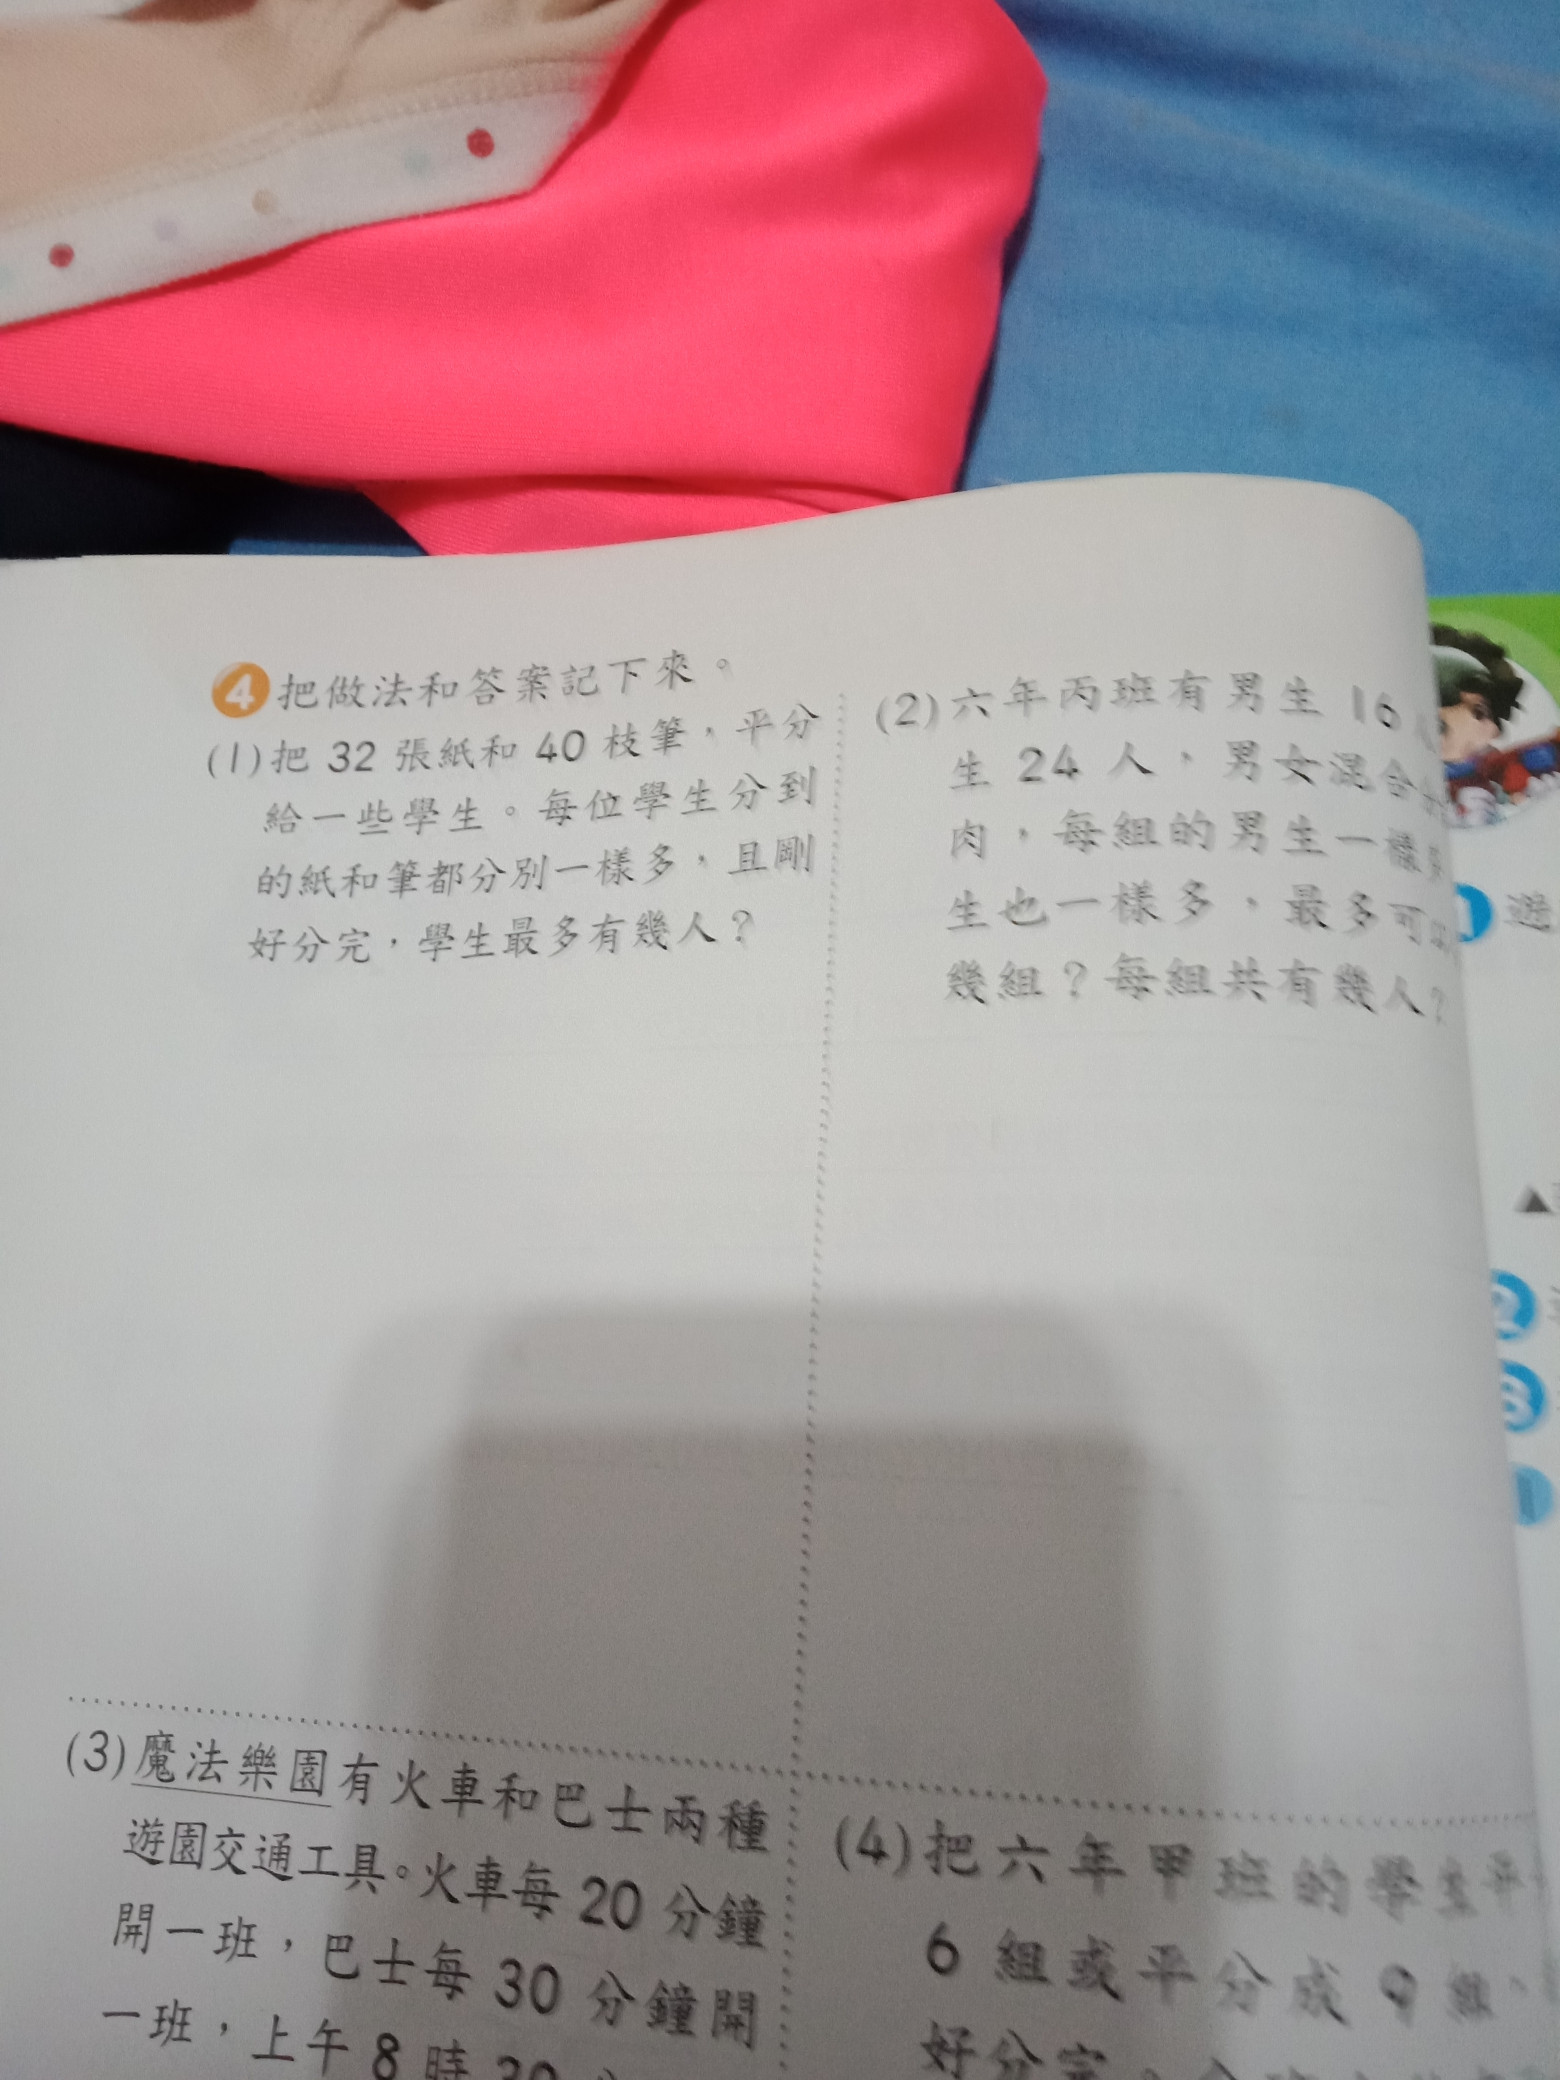 4 把做法和答案記下來。
(1)把 32 張紙和 40 枝筆，平分
給一些學生。每位學生分到
的紙和筆都分別一樣多，且剛
好分完，學生最多有幾人？
(2)六年丙班有男生 16
生 24 人，男女混合
肉，每組的男生一樣
生也一樣多，最多可
幾組？每組共有幾人？
(3)魔法樂園有火車和巴士兩種
遊園交通工具。火車每 20 分鐘
開一班，巴士每 30 分鐘開
一班，上午 8 時
(4)把六年甲班的學生平
6 組或平分成 9 組，
好分完。
1 遊
2
3
1